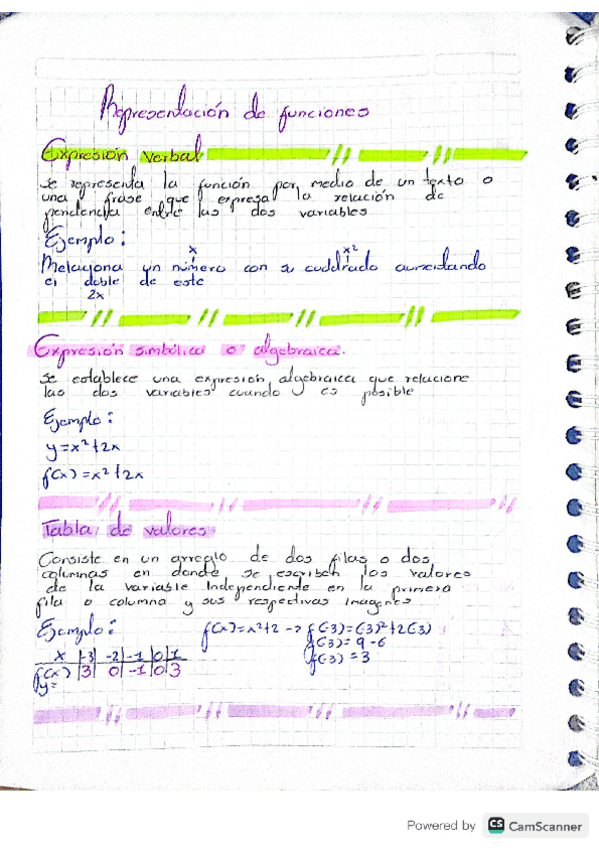 Representación de funciones
Expresión verbal
Se representa la función por medio de un texto o
una frase que expresa la relación de
pendencia entre las dos variables
Ejemplo:
x x²
Relaciona un número con su cuadrado aumentando
el doble de este
2x
Expresión simbólica o algebraica.
Se establece una expresión algebraica que relacione
las dos variables cuando y es posible
Ejemplo:
y=x²+2x
f(x)=x²+2x
Tabla de valores
Consiste en un arreglo de dos filas o dos
columnas en donde se escriben los valores
de la variable Independiente en la primera
fila o columna y sus respectivas Imagenes
Ejemplo: f(x)=x²+2 -> f(-3)=(-3)²+2(-3)
f(-3)= 9 -6
f(-3) = 3
x |-3| -2| -1 |0| 1
f(x) |3| 0| -1| 0| 3
y=
Powered by CS CamScanner